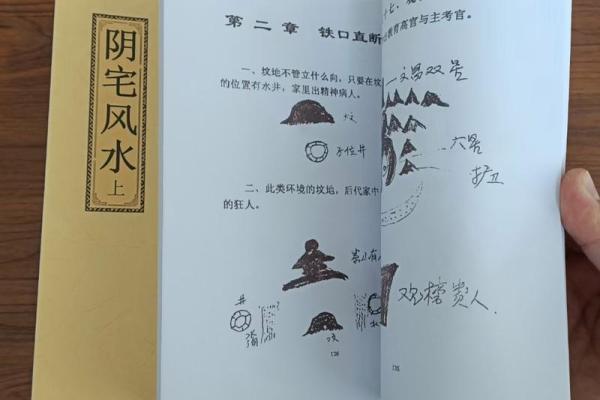 阴宅风水
上
第二章 铁口直断
一、坟地不管立什么向，只要在坟
的位置有水井，家里出精神病人。
坟
子位井
二、此类环境的坟地，后代家中
的狂人。
井
坟
126
教育高官与主考官。
文昌双
观榜贵人.